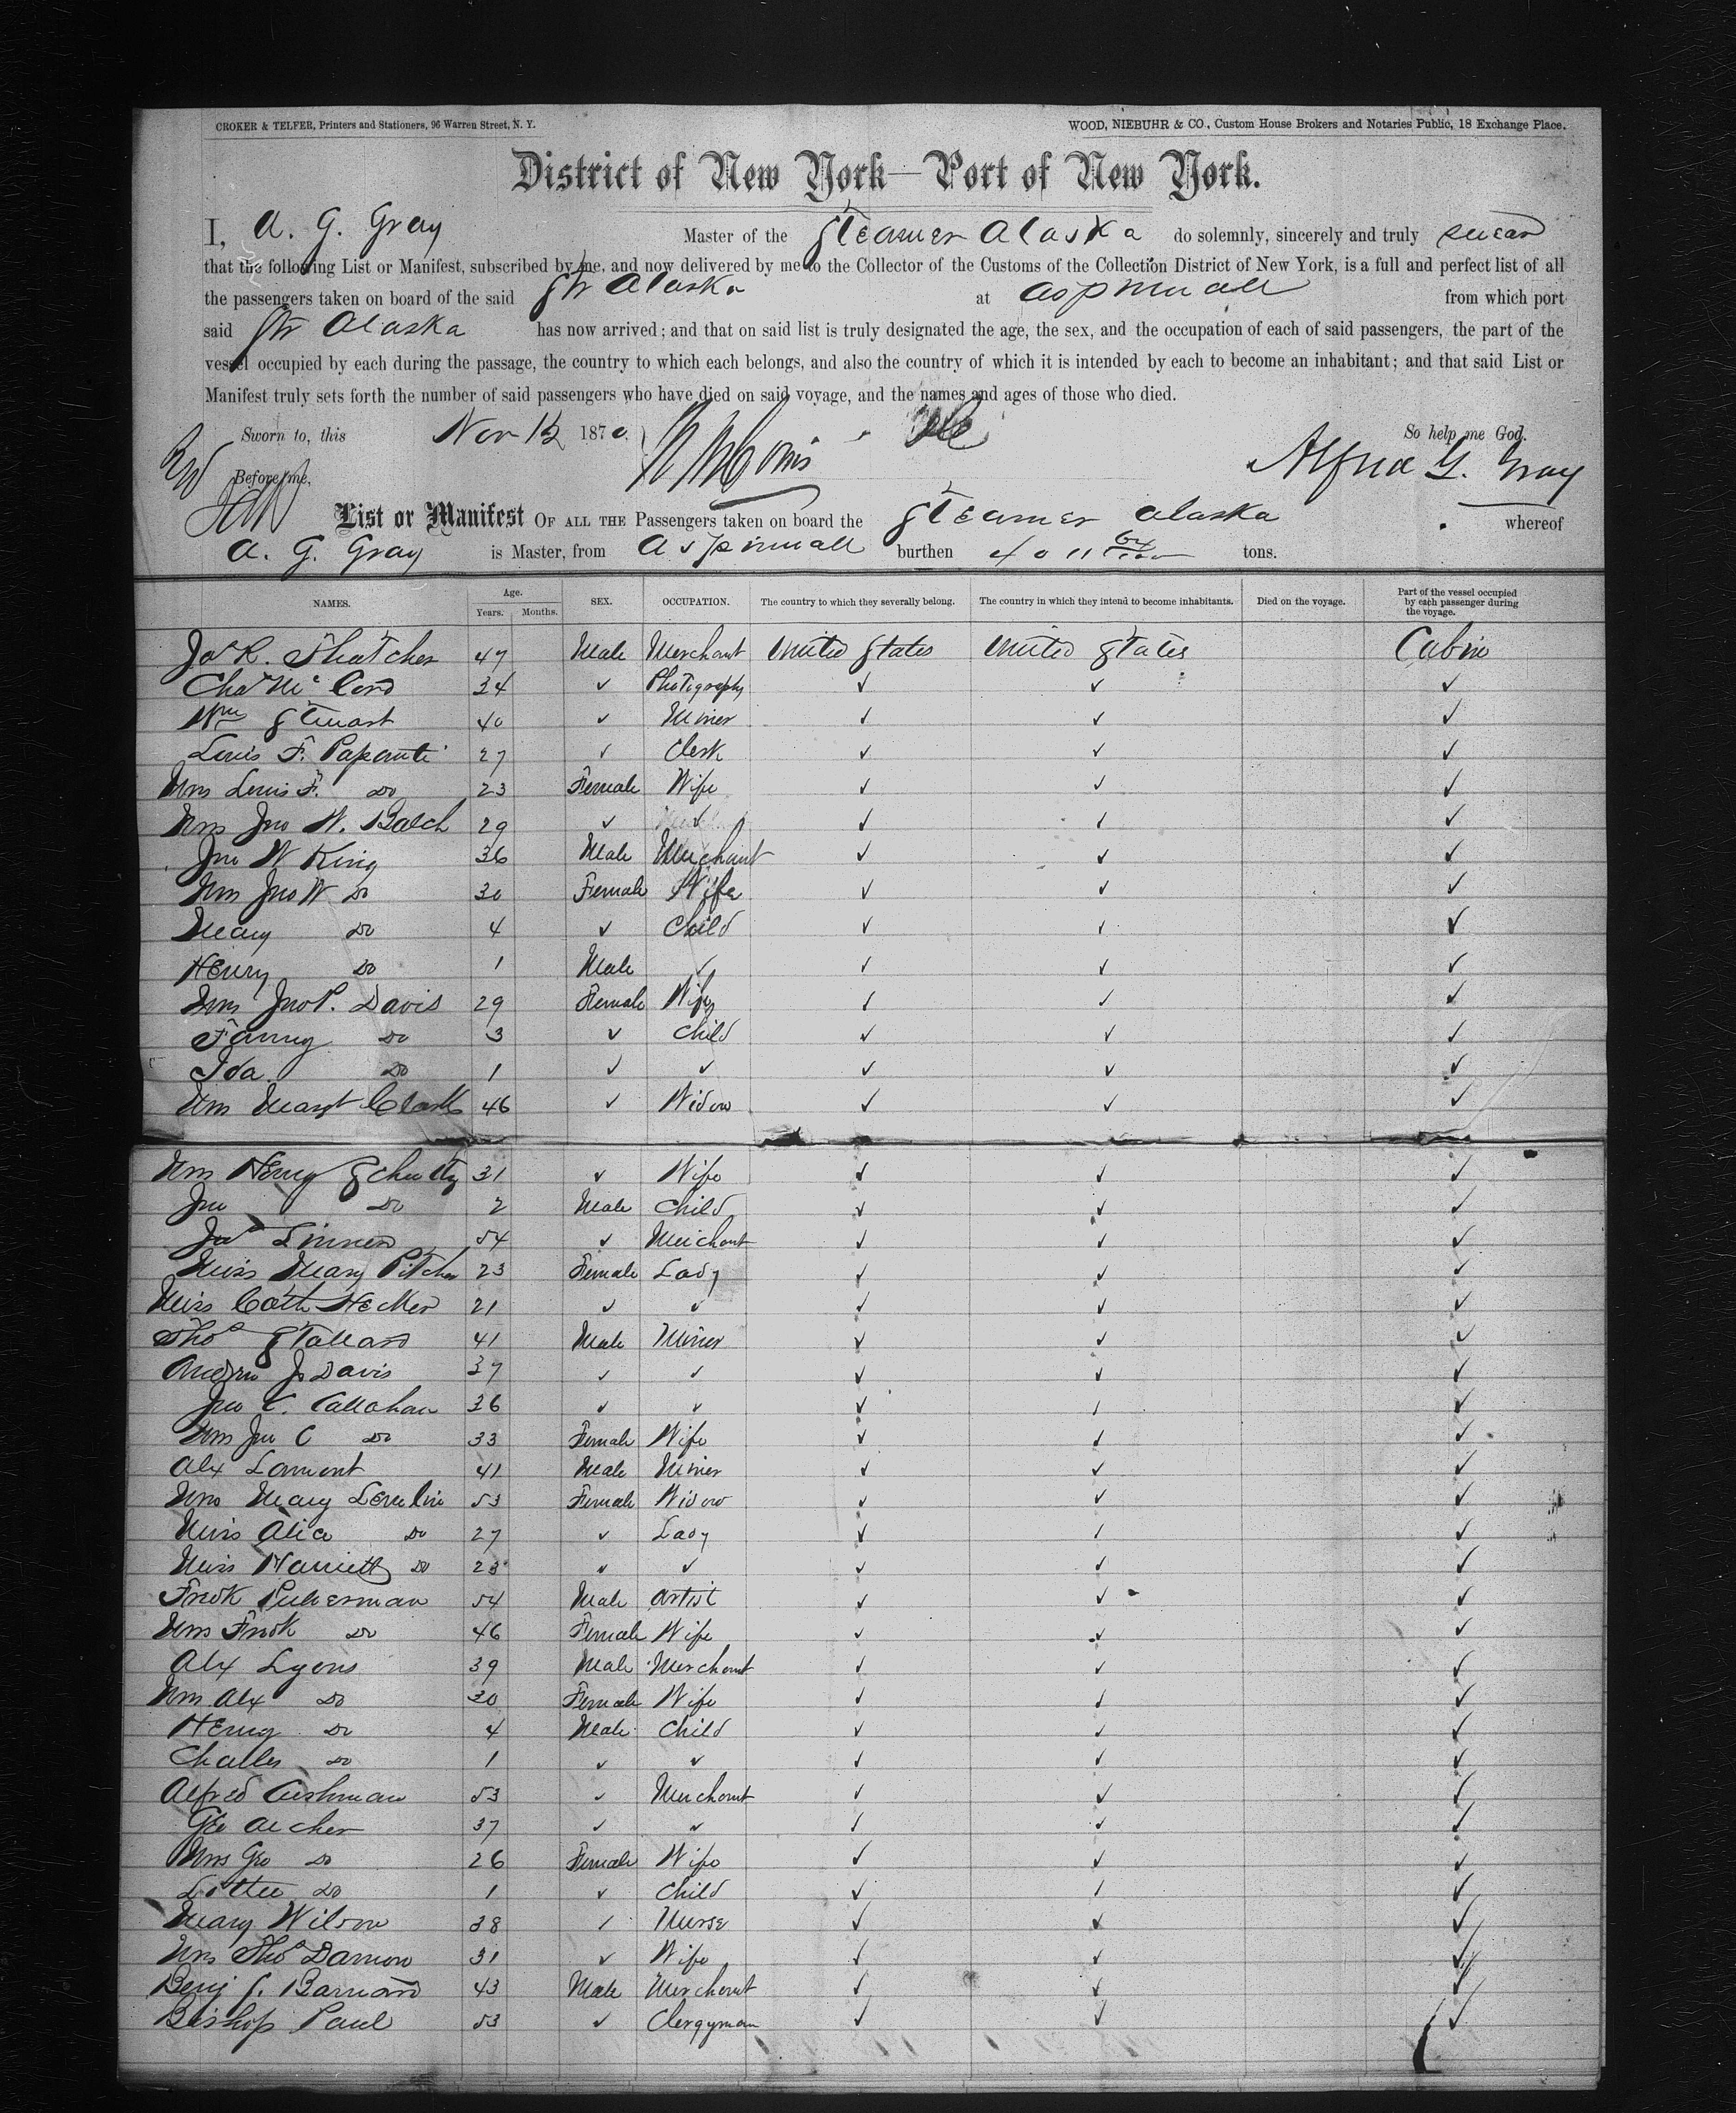 CROKER & TELFER, Printers and Stationers, 96 Warren Street, N. Y. WOOD, NIEBUHR & CO., Custom House Brokers and Notaries Public, 18 Exchange Place.
District of New York—Port of New York.
I, A. G. Gray Master of the Steamer Alaska do solemnly, sincerely and truly swear
that the following List or Manifest, subscribed by me, and now delivered by me to the Collector of the Customs of the Collection District of New York, is a full and perfect list of all
the passengers taken on board of the said Str Alaska at Aspinwall from which port
said Str Alaska has now arrived; and that on said list is truly designated the age, the sex, and the occupation of each of said passengers, the part of the
vessel occupied by each during the passage, the country to which each belongs, and also the country of which it is intended by each to become an inhabitant; and that said List or
Manifest truly sets forth the number of said passengers who have died on said voyage, and the names and ages of those who died.
Sworn to, this Nov 12 1870. So help me God.
Before me, Alfred G. Gray
List or Manifest OF ALL THE Passengers taken on board the Steamer Alaska whereof
A. G. Gray is Master, from Aspinwall burthen 4011 tons.
NAMES. Age. Years. Months. SEX. OCCUPATION. The country to which they severally belong. The country in which they intend to become inhabitants. Died on the voyage. Part of the vessel occupied by each passenger during the voyage.
Jas R. Thatcher 47 Male Merchant United States United States Cabin
Chas Mc Cord 34 ✓ Photography ✓ ✓ ✓
Wm Stuart 40 ✓ Miner ✓ ✓ ✓
Louis F. Papanti 27 ✓ Clerk ✓ ✓ ✓
Mrs Louis F. Do 23 Female Wife ✓ ✓ ✓
Mrs Jno W. Balch 29 ✓ ✓ ✓ ✓ ✓
Jno W King 36 Male Merchant ✓ ✓ ✓
Mrs Jno W Do 30 Female Wife ✓ ✓ ✓
Mary Do 4 ✓ Child ✓ ✓ ✓
Henry Do 1 Male ✓ ✓ ✓ ✓
Mrs Jno P. Davis 29 Female Wife ✓ ✓ ✓
Fanny Do 3 ✓ Child ✓ ✓ ✓
Ida Do 1 ✓ ✓ ✓ ✓ ✓
Mrs Margt Clark 46 ✓ Widow ✓ ✓ ✓
Mrs Henry Schultz 31 ✓ Wife ✓ ✓ ✓
Jno Do 2 Male Child ✓ ✓ ✓
Jas 54 ✓ Merchant ✓ ✓ ✓
Miss Mary Pitcher 23 Female Lady ✓ ✓ ✓
Miss Cath Hecker 21 ✓ ✓ ✓ ✓ ✓
Thos Stallard 41 Male Miner ✓ ✓ ✓
Andrew J. Davis 37 ✓ ✓ ✓ ✓ ✓
Jno C. Callahan 36 ✓ ✓ ✓ ✓ ✓
Mrs Jno C Do 33 Female Wife ✓ ✓ ✓
Alx Lamont 41 Male Miner ✓ ✓ ✓
Mrs Mary 53 Female Widow ✓ ✓ ✓
Miss Alice Do 27 ✓ Lady ✓ ✓ ✓
Miss Harriett Do 23 ✓ ✓ ✓ ✓ ✓
Fredk 54 Male Artist ✓ ✓ ✓
Mrs Fredk Do 46 Female Wife ✓ ✓ ✓
Alx Lyons 39 Male Merchant ✓ ✓ ✓
Mrs Alx Do 30 Female Wife ✓ ✓ ✓
Henry Do 4 Male Child ✓ ✓ ✓
Challes Do 1 ✓ ✓ ✓ ✓ ✓
Alfred Cushman 53 ✓ Merchant ✓ ✓ ✓
Geo Archer 37 ✓ ✓ ✓ ✓ ✓
Mrs Geo Do 26 Female Wife ✓ ✓ ✓
Lottie Do 1 ✓ Child ✓ ✓ ✓
Mary Wilson 38 ✓ Nurse ✓ ✓ ✓
Mrs Thos Damon 31 ✓ Wife ✓ ✓ ✓
Benj S. Barnard 43 Male Merchant ✓ ✓ ✓
Bishop Paul 53 ✓ Clergyman ✓ ✓ ✓